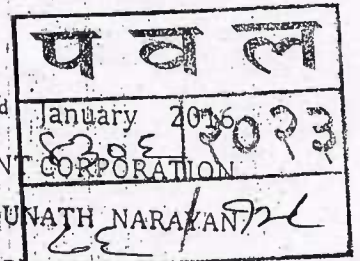 प व ल
January 2016
२०२३
NT CORPORATION
UNATH NARAYAN